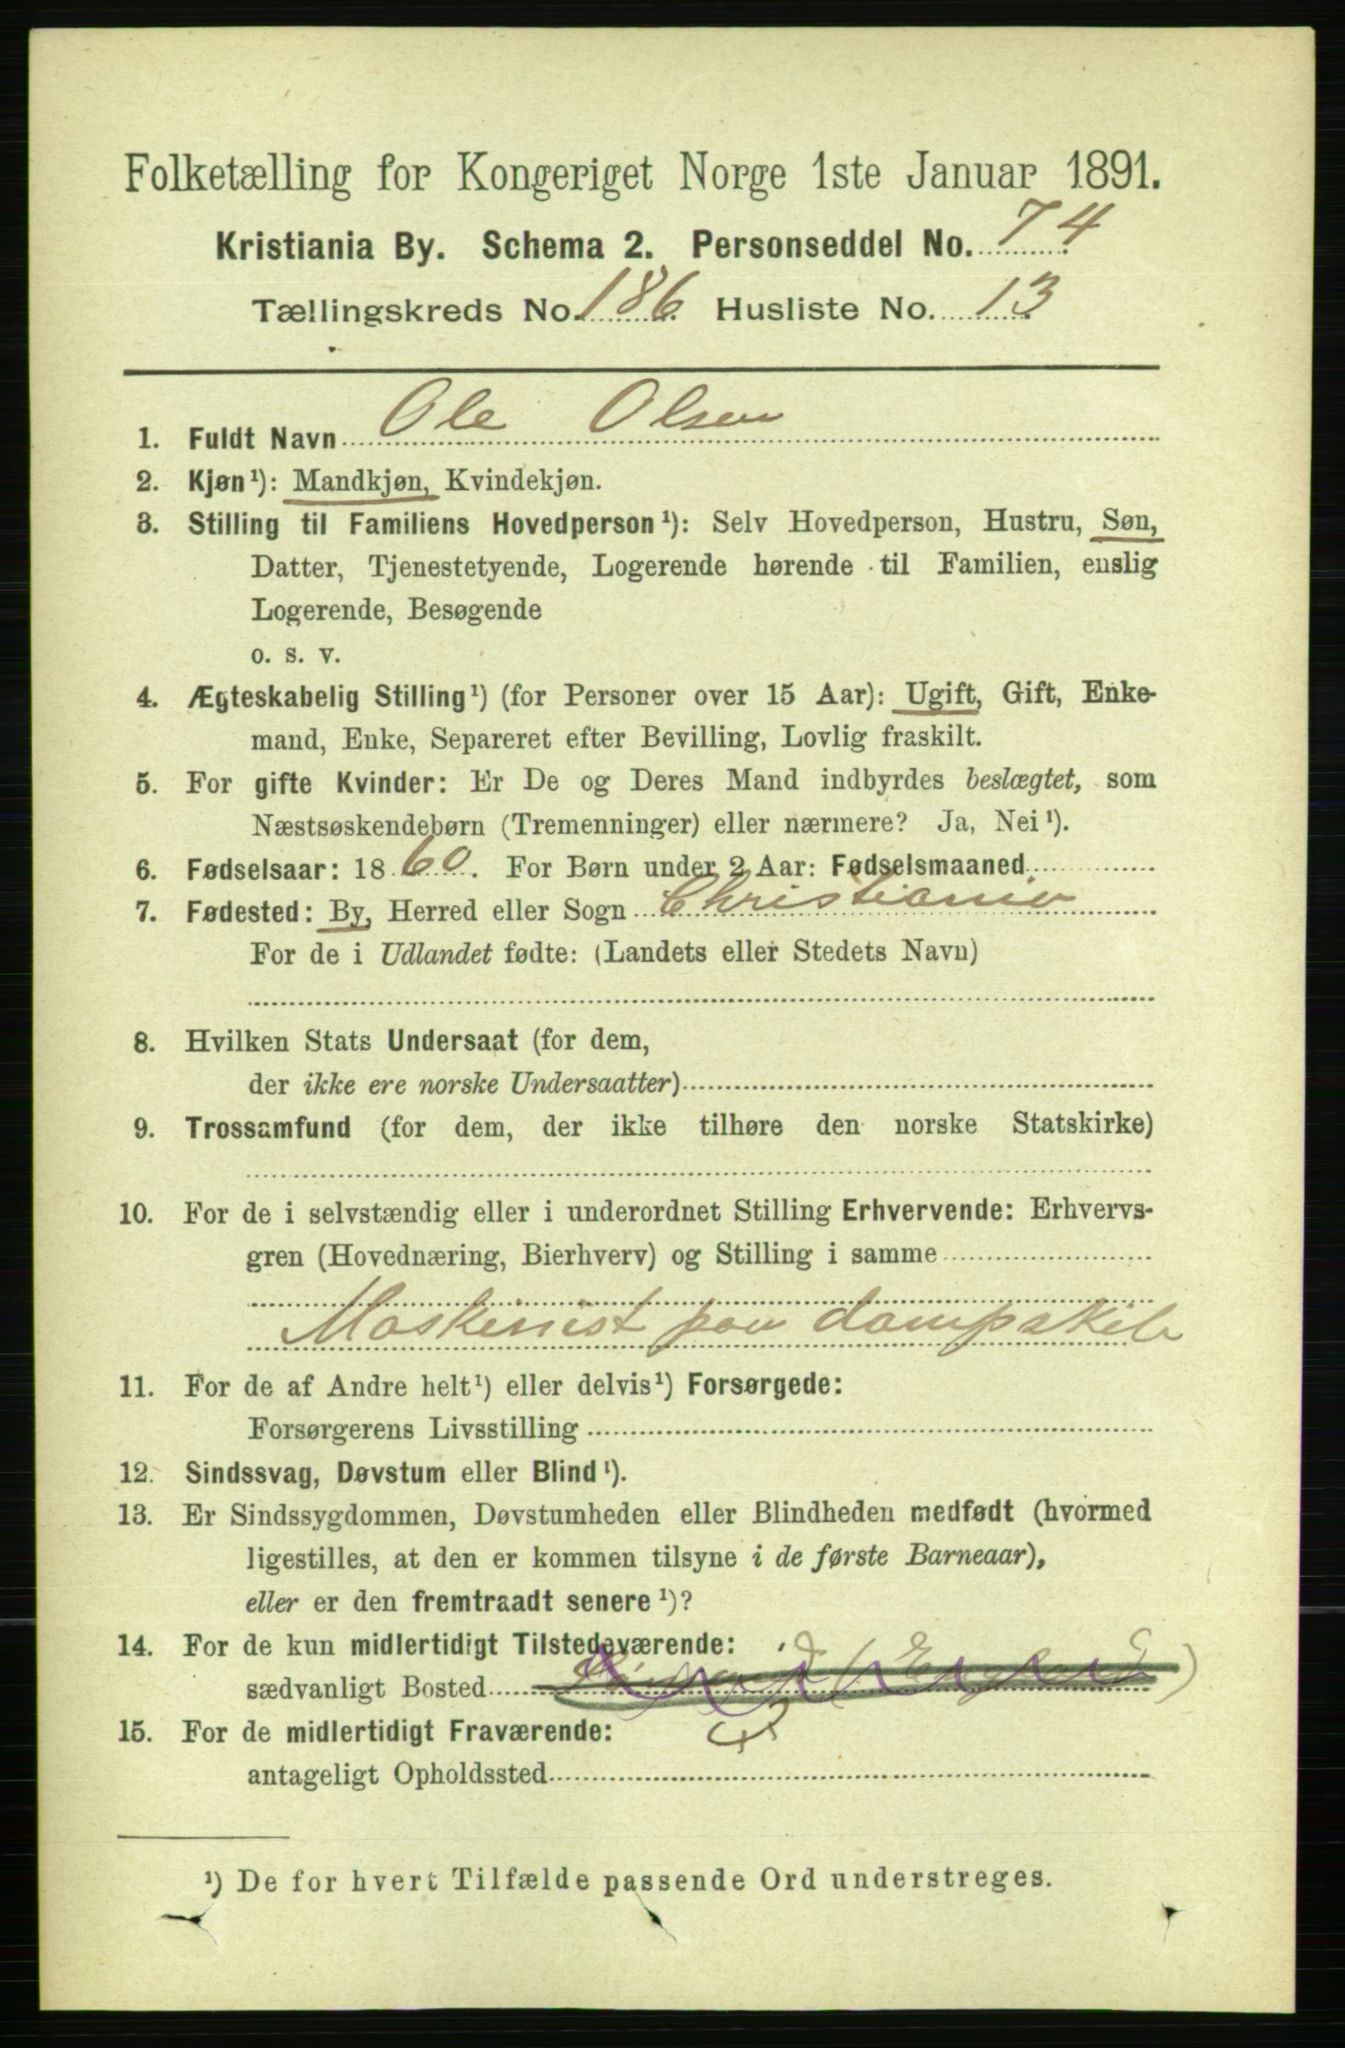 Folketælling for Kongeriget Norge 1ste Januar 1891.
Kristiania By. Schema 2. Personseddel No. 74
Tællingskreds No. 186 Husliste No. 13
1. Fuldt Navn Ole Olsen
2. Kjøn¹): Mandkjøn, Kvindekjøn.
3. Stilling til Familiens Hovedperson¹): Selv Hovedperson, Hustru, Søn,
Datter, Tjenestetyende, Logerende hørende til Familien, enslig
Logerende, Besøgende
o. s. v.
4. Ægteskabelig Stilling¹) (for Personer over 15 Aar): Ugift, Gift, Enke-
mand, Enke, Separeret efter Bevilling, Lovlig fraskilt.
5. For gifte Kvinder: Er De og Deres Mand indbyrdes beslægtet, som
Næstsøskendebørn (Tremenninger) eller nærmere? Ja, Nei¹).
6. Fødselsaar: 1860. For Børn under 2 Aar: Fødselsmaaned
7. Fødested: By, Herred eller Sogn Christiania
For de i Udlandet fødte: (Landets eller Stedets Navn)
8. Hvilken Stats Undersaat (for dem,
der ikke ere norske Undersaatter)
9. Trossamfund (for dem, der ikke tilhøre den norske Statskirke)
10. For de i selvstændig eller i underordnet Stilling Erhvervende: Erhvervs-
gren (Hovednæring, Bierhverv) og Stilling i samme
Maskinist paa dampskib
11. For de af Andre helt¹) eller delvis¹) Forsørgede:
Forsørgerens Livsstilling
12. Sindssvag, Døvstum eller Blind¹).
13. Er Sindssygdommen, Døvstumheden eller Blindheden medfødt (hvormed
ligestilles, at den er kommen tilsyne i de første Barneaar),
eller er den fremtraadt senere¹)?
14. For de kun midlertidigt Tilstedeværende:
sædvanligt Bosted
15. For de midlertidigt Fraværende:
antageligt Opholdssted
¹) De for hvert Tilfælde passende Ord understreges.